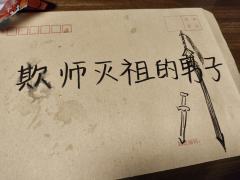 欺师灭祖的男子